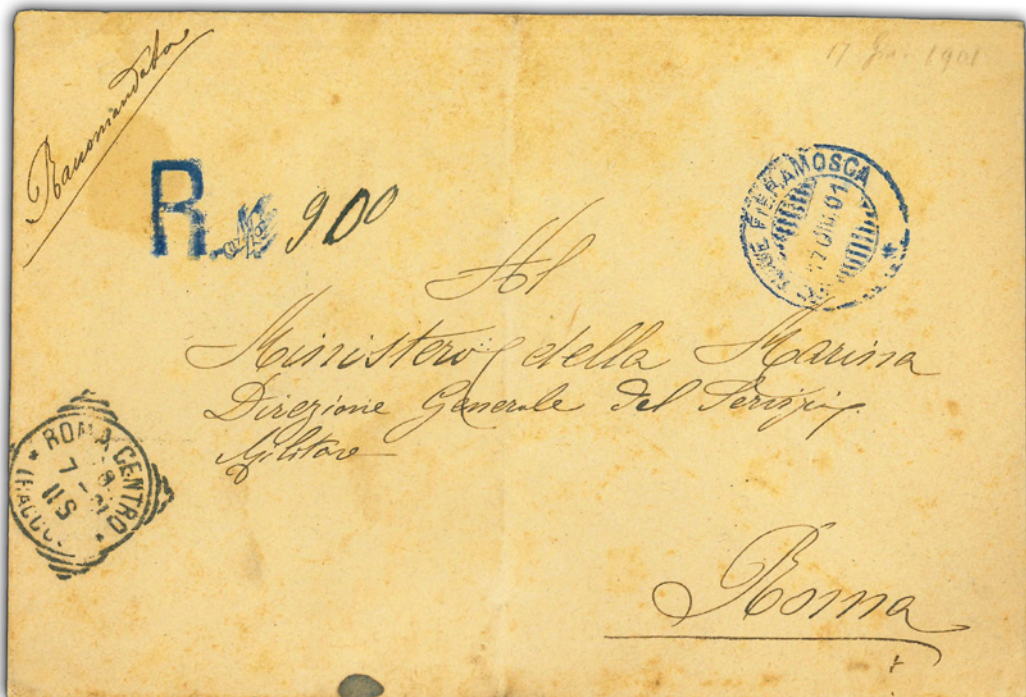 Raccomandata
17 1901
R.
900
FIERAMOSCA
17 GIU. 01
Al
Ministero della Marina
Direzione Generale del Servizio
Militare
ROMA CENTRO
7
11S
Roma